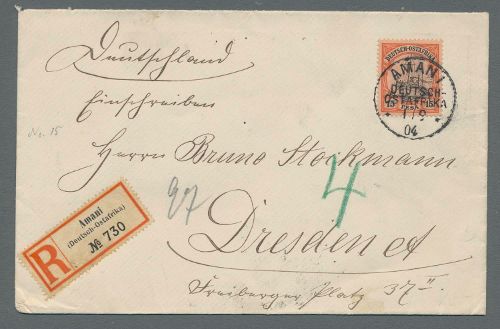 Deutschland
Einschreiben
Herrn Bruno Stockmann
Dresden A
Freiberger Platz 37 II
DEUTSCH-OSTAFRIKA
AMANI
DEUTSCH-
OSTAFRIKA
1/9
04
No. 15
97
4
R
Amani
(Deutsch-Ostafrika)
№ 730